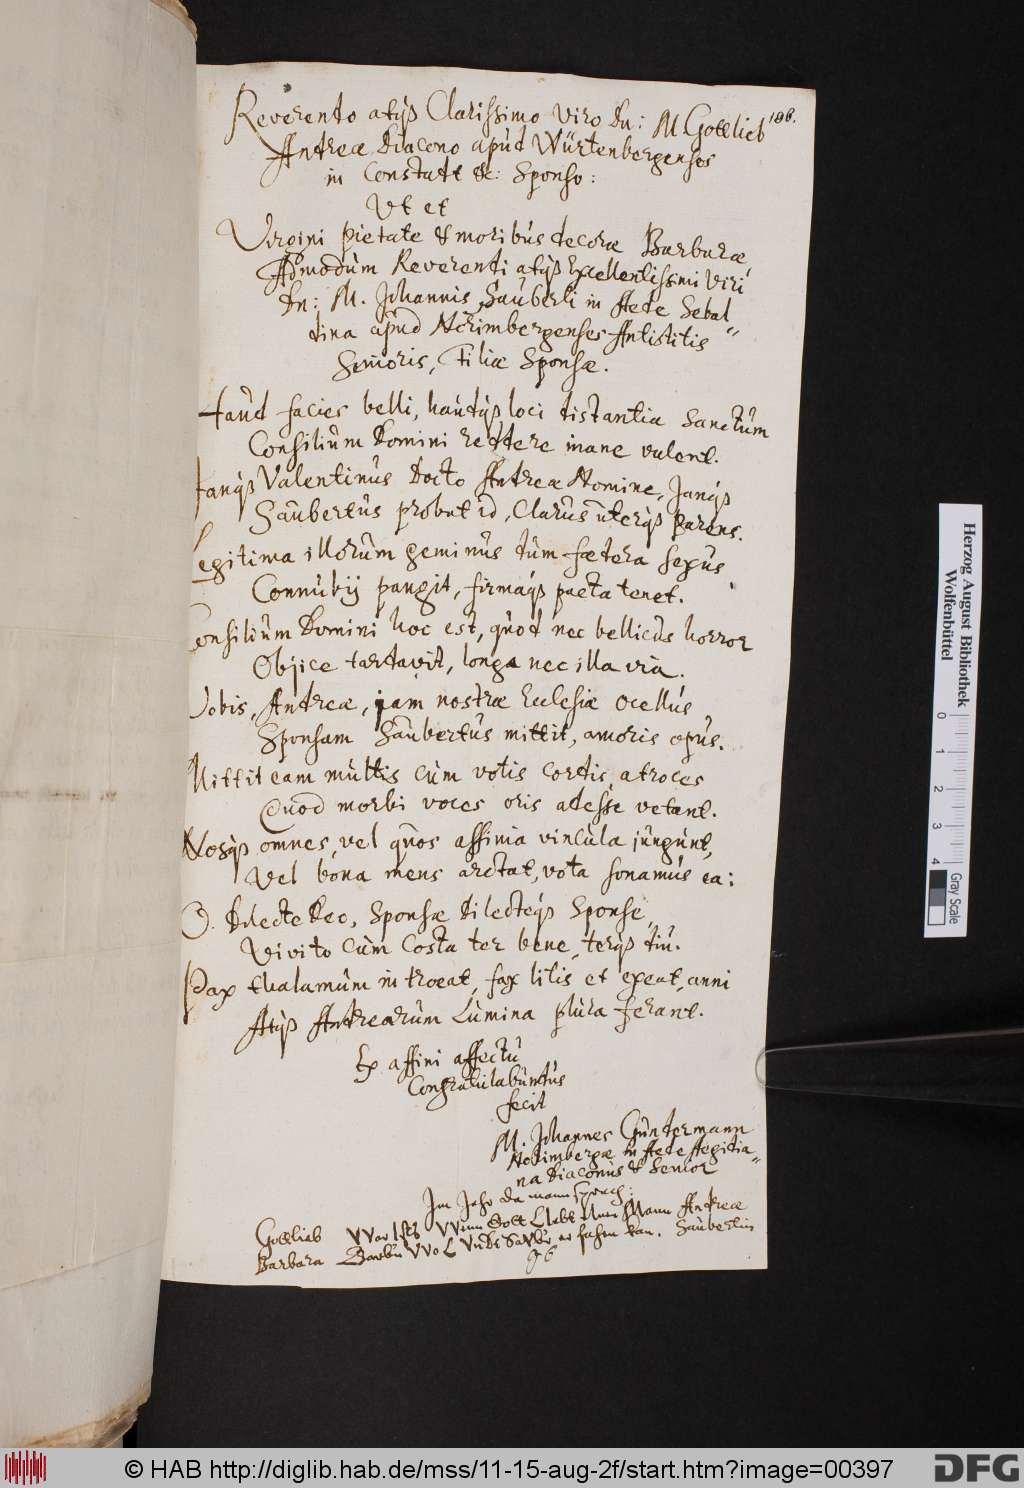 Reverendo atqȝ Clarissimo Viro Dn: M. Gottlieb
186.
Andreæ Diacono apud Würtenbergenses
in Constatt &c: Sponso:
Ut et
Virgini pietate & moribus decoræ Barbaræ
Admodum Reverenti atqȝ Excellentissimi Viri
Dn: M. Johannis Sauberti in Aede Sebal-
dina apud Norimbergenses Antistitis
Senioris, Filiæ Sponsæ.
Haud facies belli, haudqȝ loci distantia Sanctum
Consilium Domini reddere inane valent.
Janqȝ Valentinus Docto Andreæ Nomine, Janqȝ
Saubertus probat id, Clarus uterqȝ parens.
Legitima illorum geminus tum fœdera sexus
Connubij pangit, firmaqȝ pacta tenet.
Consilium Domini hoc est, quod nec bellicus horror
Objice tardavit, longa nec illa via.
Vobis, Andreæ, jam nostræ Ecclesiæ Ocellus
Sponsam Saubertus mittit, amoris opus.
Mittit eam multis cum votis cordis, atroces
Quod morbi voces oris adesse vetant.
Nosqȝ omnes, vel quos affinia vincula jungunt,
Vel bona mens arctat, vota sonamus ea:
O. Dilecte Deo, Sponsæ dilecteqȝ Sponse,
Vivito cum Costa ter bene, terqȝ diu.
Pax thalamum introeat, fax litis et exeat, anni
Atqȝ Andrearum Lumina plura ferant.
Ex affini affectu
Congratulabundus
fecit
M. Johannes Güntermann
Norimbergæ in Aede Aegidia-
na Diaconus & Senior
Im Jahr da mann sprach:
Gottlieb VVor Ists VVenn Gott LIebt Mann Andreæ
Barbara VVoL Vnd er fahrn kan. Sauberlin
Herzog August Bibliothek
Wolfenbüttel
0 1 2 3 4
Gray Scale
© HAB http://diglib.hab.de/mss/11-15-aug-2f/start.htm?image=00397
DFG